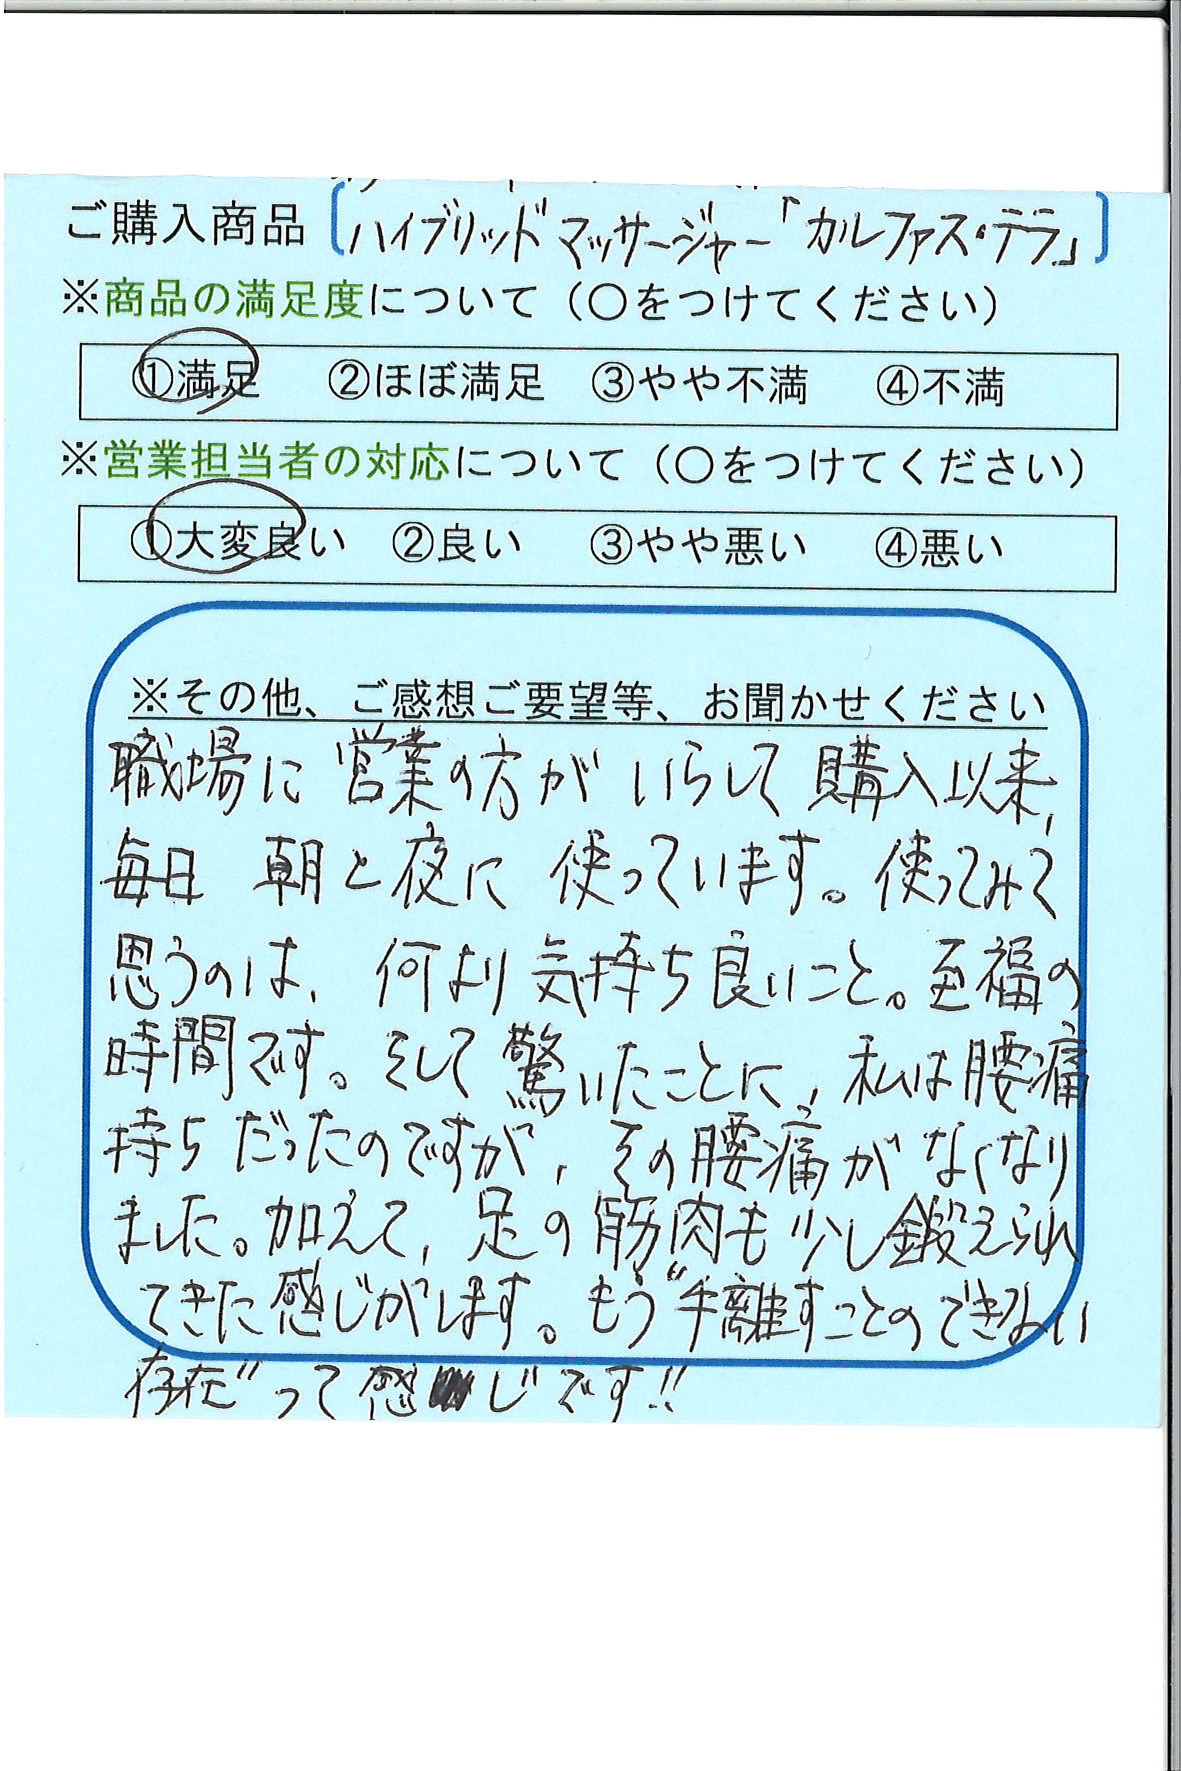 ご購入商品 〔ハイブリッドマッサージャー「カルファス・テラ」〕
※商品の満足度について（○をつけてください）
①満足 ②ほぼ満足 ③やや不満 ④不満
※営業担当者の対応について（○をつけてください）
①大変良い ②良い ③やや悪い ④悪い
※その他、ご感想ご要望等、お聞かせください
職場に営業の方がいらして購入以来、
毎日 朝と夜に使っています。使ってみて
思うのは、何より気持ち良いこと。至福の
時間です。そして驚いたことに、私は腰痛
持ちだったのですが、その腰痛がなくなり
ました。加えて、足の筋肉も少し鍛えられ
てきた感じがします。もう“手離すことのできない
存在”って感じです!!